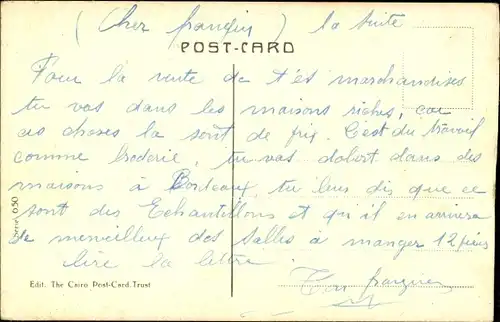 (Cher frangin) la suite
POST-CARD
Pour la vente de t'es marchandises
tu vas dans les maisons riches, car
ces choses la sont de prix. C'est du travail
comme broderie, tu vas dabort dans des
maisons à Bordeaux, tu leur dis que ce
sont des Echantillons et qu'il en arrivera
de merveilleux des salles à manger 12 pièces
lire la lettre
Ton frangin
Edit. The Cairo Post-Card Trust
Serie 650